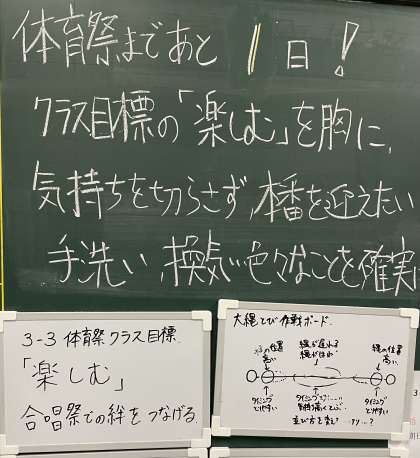 体育祭まであと 1 日!
クラス目標の「楽しむ」を胸に、
気持ちを切らさず、本番を迎えたい
手洗い、換気、色々なことを確実
3-3 体育祭クラス目標
「楽しむ」
合唱祭での絆をつなげる
大縄とび作戦ボード
の位置
高い
縄が遅れる
縄の位置
高い
タイミング
とりやすい
タイミング
とりやすい
並び方を変え